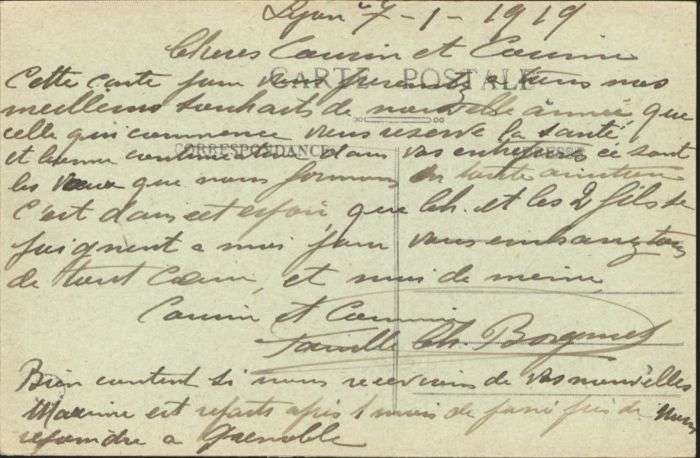 Lyon le 7-1-1919
Cheres Cousin et Cousine
CARTE POSTALE
Cette carte pour vous presenter à tous nos
meilleurs souhaits de nouvelle année, que
celle qui commence vous reserve la santé
CORRESPONDANCE
et bonne continuation dans vos entreprises ce sont
les vœux que nous formons en toute
C'est dans cet espoir, que Ch. et les 2 fils se
joignent a moi pour vous embrasser tous
de tout cœur, et moi de meme
Cousin et Cousine
Famille Ch. Borgnet
Bien content si nous recevions de vos nouvelles
Maxime est reparti après 1 mois de passé près de nous
rejoindre a Grenoble